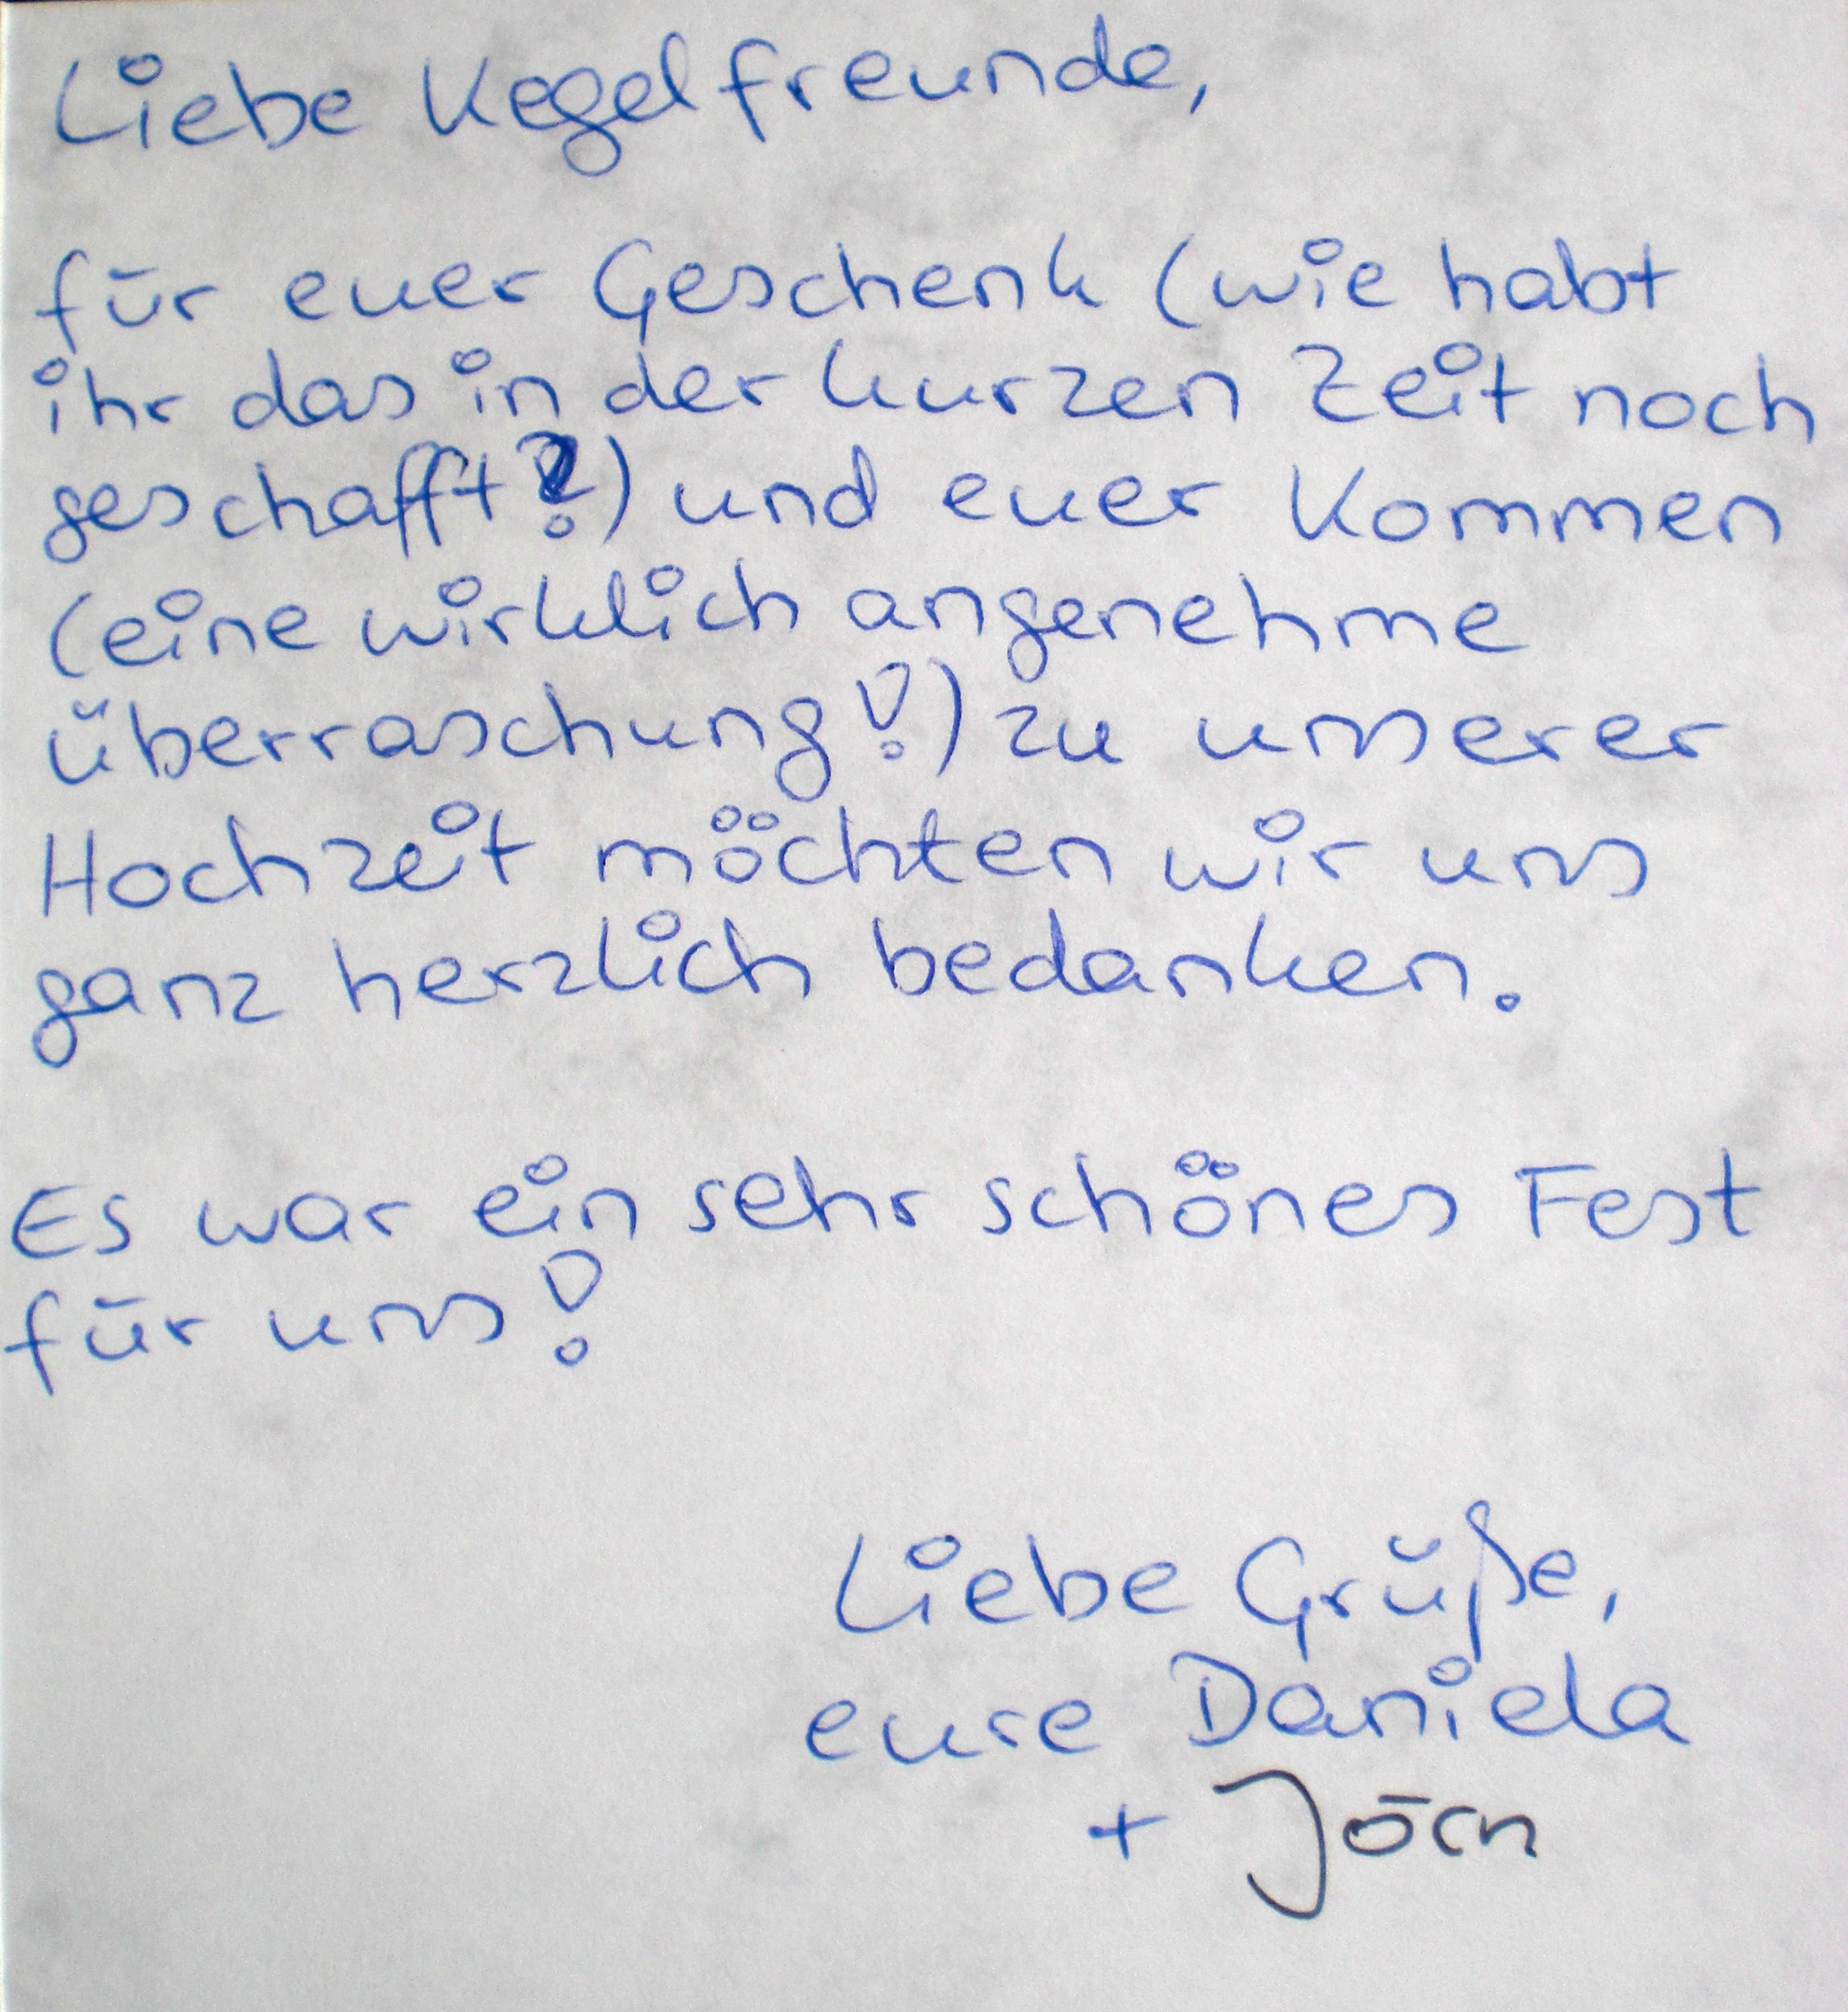 Liebe Kegelfreunde,
für euer Geschenk (wie habt
ihr das in der kurzen Zeit noch
geschafft?) und euer Kommen
(eine wirklich angenehme
überraschung!) zu unserer
Hochzeit möchten wir uns
ganz herzlich bedanken.
Es war ein sehr schönes Fest
für uns!
Liebe Grüße,
eure Daniela
+ Jörn